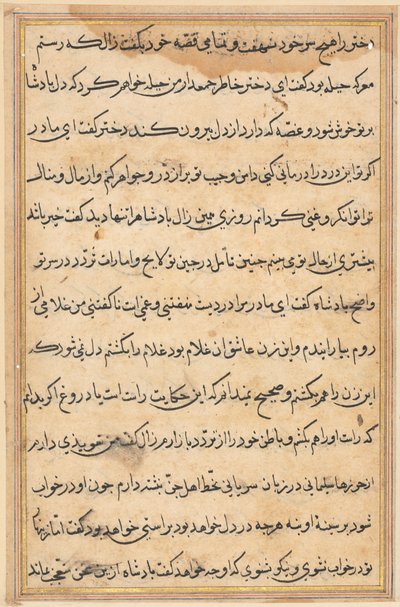 دختر را هیچ سر خود نهفت و تمامی قصه خود بگفت زال که رستم
موکه حیله بود گفت ای دختر خاطر جمع دار من حیله خواهم کرد که دل پادشاه
بر تو خوش شود و غصه که دارد از دل بیرون کند دختر گفت ای مادر
اگر تو این درد را درمانی کنی دامن و جیب تو پر از در و جواهر کنم و از مال و منال
ترا توانگر و غنی گردانم روزی همین زال پادشاه را تنها دید گفت خیر باشد
بیشتری از حالها ترا می بینم چنین تأمل در جبین تو لایح و امارات تردد در سر تو
واضح پادشاه گفت ای مادر مرا دردیست نهفتنی و غمی است ناگفتنی من غلامی از
روم بیاریدم و این زن عاشق ان غلام بود غلام را بکشتم دل نمی شود که
این زن را هم بکشم و صحیح نمیدانم که این حکایت راست است یا دروغ اگر بدانم
که راست او را هم بکشم و باطن خود را از تردد باز ارم زال گفت من تعویذی دارم
از حرزهاء سلیمانی در زبان سریانی بخط اهل جن نبشته دارم چون او در خواب
شود بر سینهٔ او بنه هرچه در دل خواهد بود براستی خواهد بود گفت اما
تو در خواب شوی و نیکو شنوی که او چه خواهد گفت پادشاه از این سخن متعجب بماند